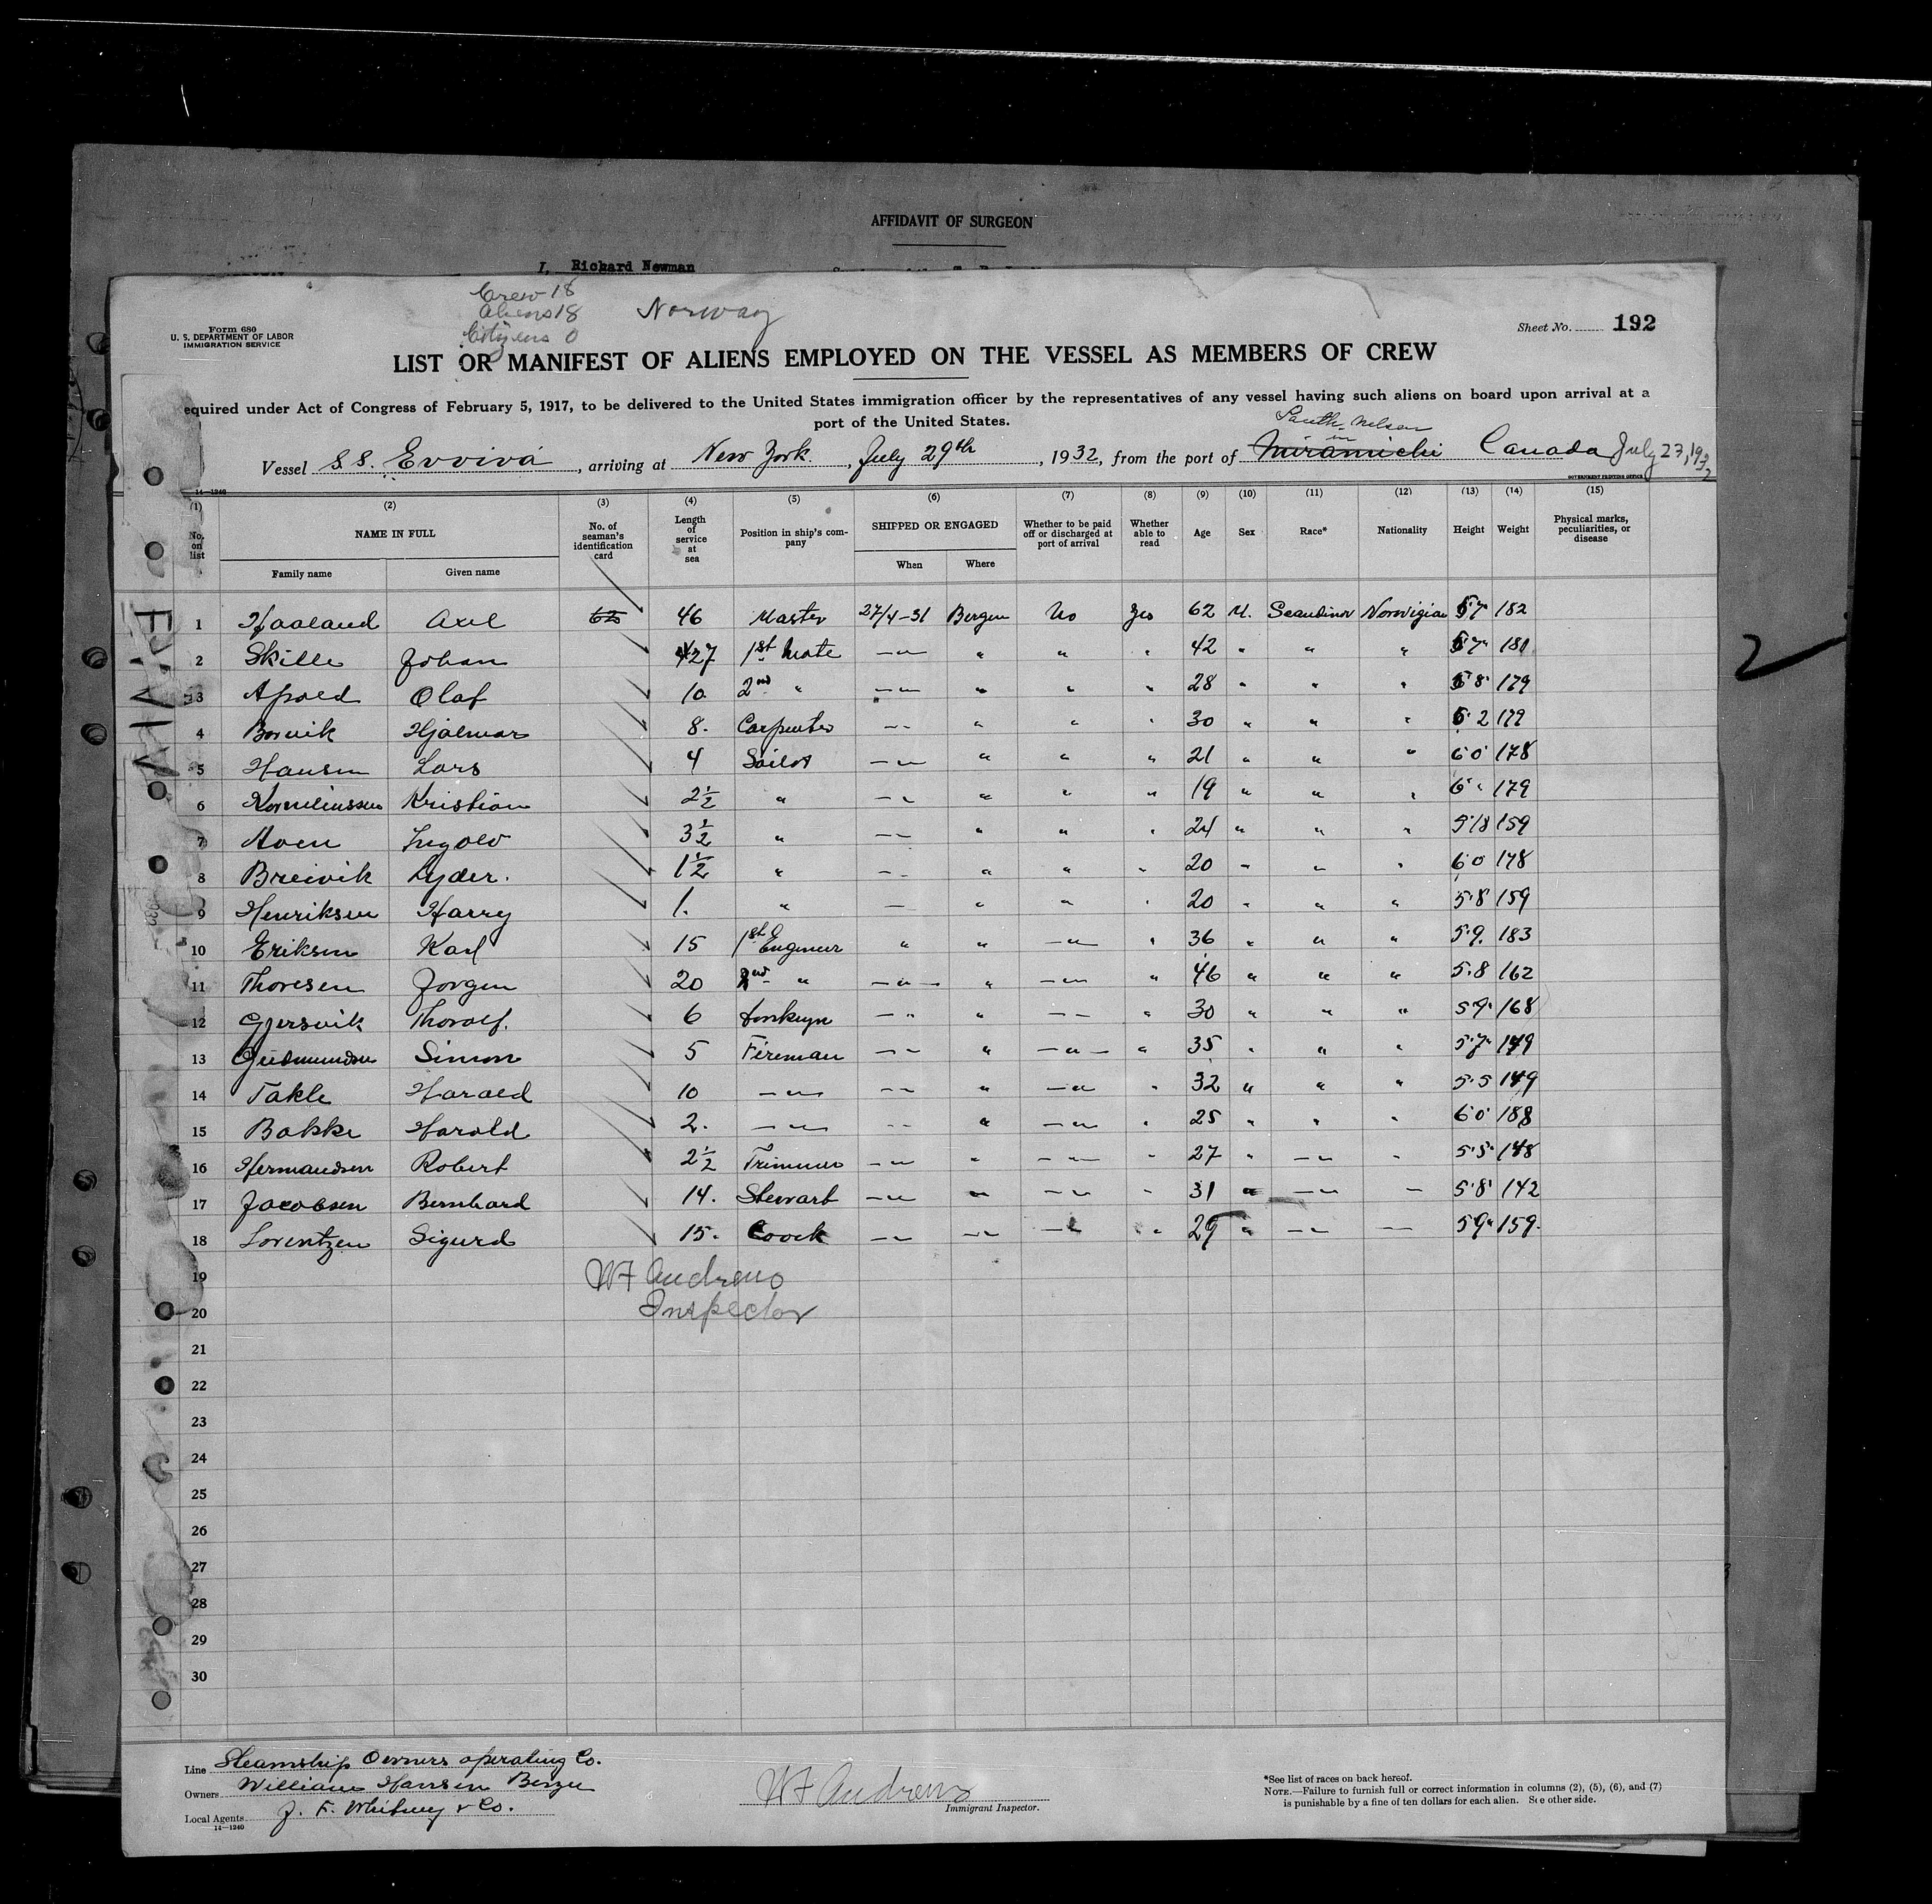 AFFIDAVIT OF SURGEON
I, Richard Newman
Crew 18
Aliens 18
Citizens 0
Norway
Form 680
U. S. DEPARTMENT OF LABOR
IMMIGRATION SERVICE
Sheet No. 192
LIST OR MANIFEST OF ALIENS EMPLOYED ON THE VESSEL AS MEMBERS OF CREW
equired under Act of Congress of February 5, 1917, to be delivered to the United States immigration officer by the representatives of any vessel having such aliens on board upon arrival at a
port of the United States.
South Nelson
Vessel S.S. Evviva, arriving at New York, July 29th, 1932, from the port of Miramichi Canada July 23, 1932
14—1240
GOVERNMENT PRINTING OFFICE
(1) (2) (3) (4) (5) (6) (7) (8) (9) (10) (11) (12) (13) (14) (15)
No. on list NAME IN FULL No. of seaman's identification card Length of service at sea Position in ship's com-pany SHIPPED OR ENGAGED Whether to be paid off or discharged at port of arrival Whether able to read Age Sex Race* Nationality Height Weight Physical marks, peculiarities, or disease
Family name Given name When Where
1 Haaland Axel 62 46 Master 27/4-31 Bergen No Yes 62 M. Scandinav Norvigian 5'7" 182
2 Skille Johan 27 1st Mate —"— " " " 42 " " " 5'7" 180
3 Apold Olaf 10 2nd " —"— " " " 28 " " " 5'8" 179
4 Borvik Hjalmar 8. Carpenter —"— " " " 30 " " " 5'2 179
5 Hansen Lars 4 Sailor —"— " " " 21 " " " 6'0" 178
6 Korneliussen Kristian 2½ " —"— " " " 19 " " " 6' " 179
7 Ingolv 3½ " —"— " " " 24 " " " 159
8 Breivik Lyder. 1½ " —"— " " " 20 " " " 6'0 178
9 Henriksen Harry 1. " — " " " 20 " " " 5'8 159
10 Eriksen Karl 15 1st Engineer " " —"— " 36 " " " 5'9. 183
11 Thoresen Jorgen 20 2nd " —"— " —"— " 46 " " " 5.8 162
12 Gjersvik Thoralf. 6 —"— " —"— " 30 " " " 5'9" 168
13 Gudmundsen Simon 5 Fireman —"— " —"— " 35 " " " 5'7" 149
14 Takle Harald 10 —"— —"— " —"— " 32 " " " 5'5 149
15 Bakke Harald 2. —"— —"— " —"— " 25 " " " 6'0" 188
16 Hermandsen Robert 2½ Trimmer —"— " —"— " 27 " —"— " 5'5" 148
17 Jacobsen Bernhard 14. Stewart —"— " —"— " 31 " —"— — 5'8" 142
18 Lorentzen Sigurd 15. Coock —"— —"— —"— " 29 " —"— — 5'9" 159.
19 W F Andrews
20 Inspector
21
22
23
24
25
26
27
28
29
30
EVVIVA
2
Line Steamship Owners operating Co.
Owners William Hansen Bergen
Local Agents J. F. Whitney & Co.
14—1240
W F Andrews
Immigrant Inspector.
*See list of races on back hereof.
NOTE.—Failure to furnish full or correct information in columns (2), (5), (6), and (7)
is punishable by a fine of ten dollars for each alien. See other side.